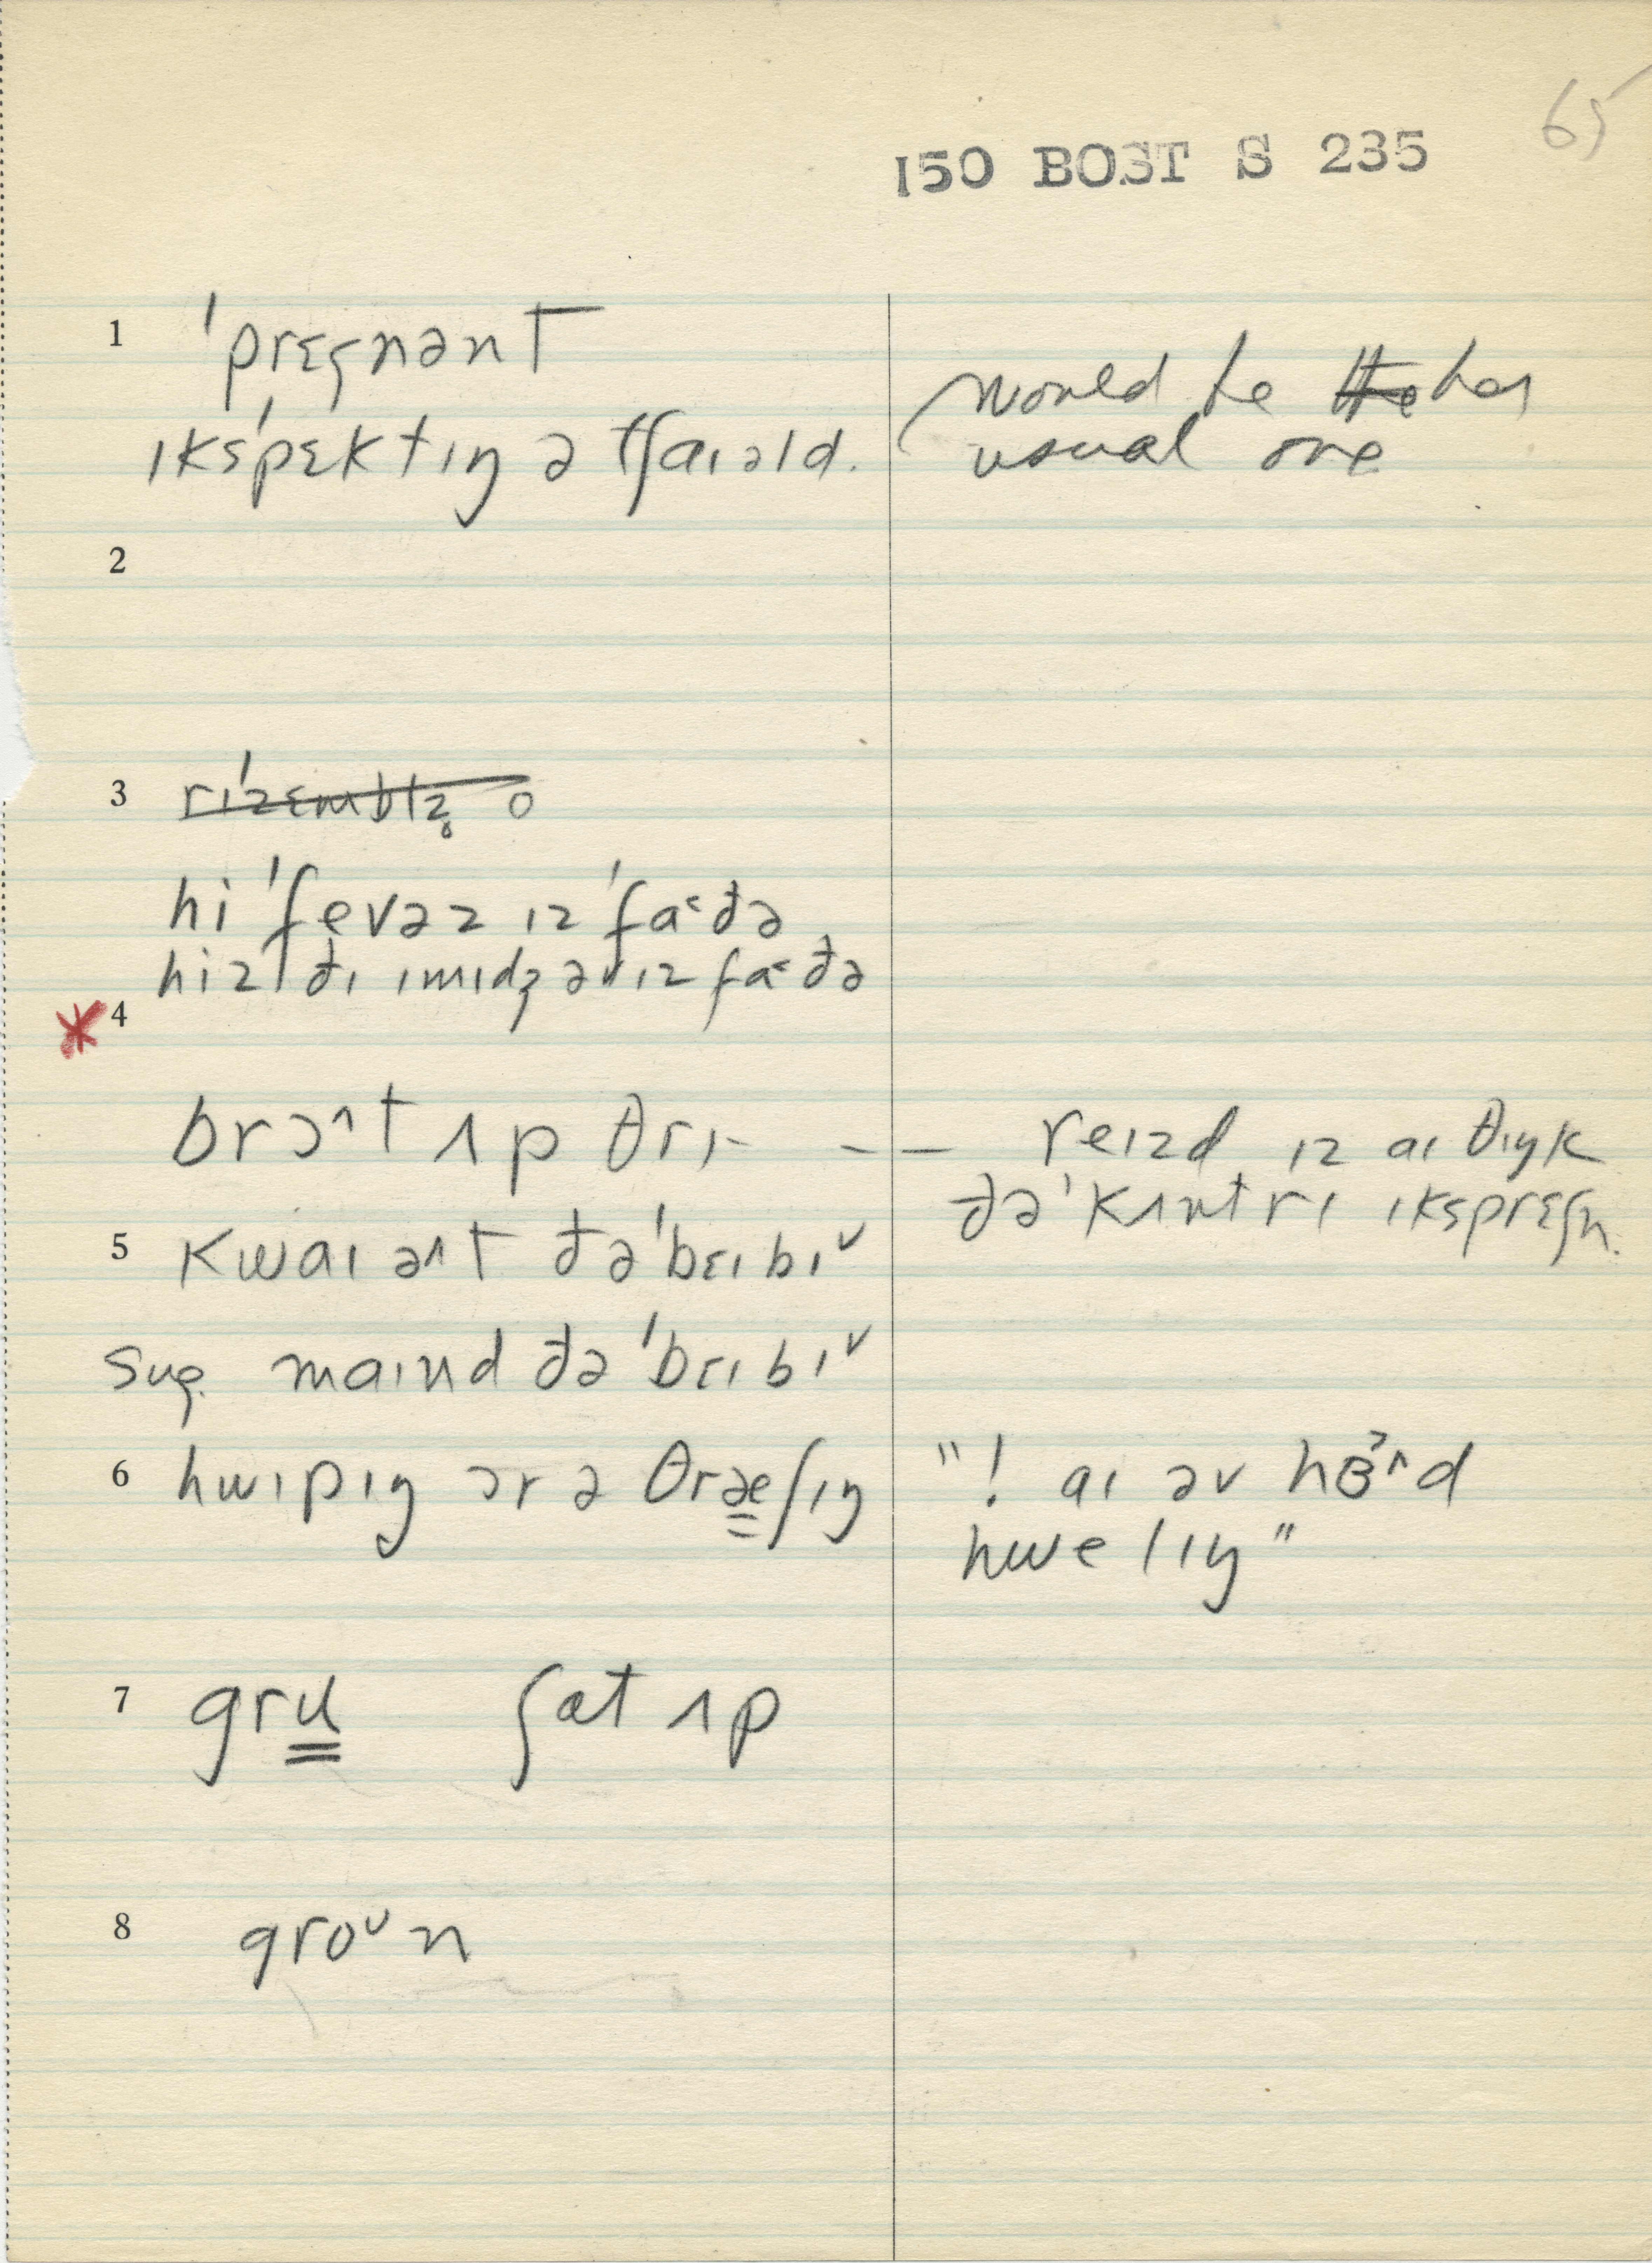 65
150 BOST S 235
1 ˈprɛgnənt
ɪksˈpɛktɪŋ ə tʃaɪəld. (would be the her
usual one
2
3 rɪˈzɛmblz̥ o
hi ˈfevəz ɪz ˈfa˂ðə
hiz ðɪ ɪmɪdʒ əv ɪz fa˂ðə
* 4
brɔ^t ʌp θrɪ- -- reɪzd ɪz aɪ θɪŋk
ðə ˈkʌntrɪ ɪksprɛʃn.
5 kwaɪ ə^t ðə ˈbɛɪbɪˇ
sug. maɪnd ðə ˈbɛɪbɪˇ
6 hwɪpɪŋ ɔr ə θræʃɪŋ "! aɪ əv hɜ^d
hwelɪŋ"
7 gru ʃɑt ʌp
8 groᴜn